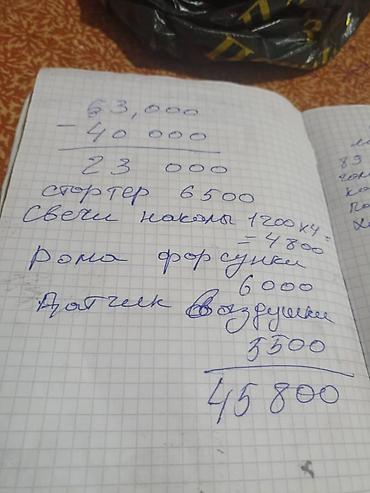 63,000
- 40 000
23 000
стортер 6500
Свечи накалы 1200х4=
= 4800
Рома форсунки
6000
Датчик Воздушки
5500
45 800
83